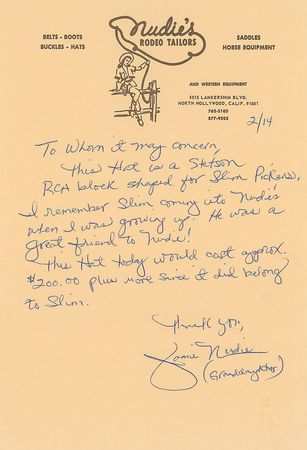 Nudie's
RODEO TAILORS
BELTS - BOOTS
BUCKLES - HATS
SADDLES
HORSE EQUIPMENT
AND WESTERN EQUIPMENT
5015 LANKERSHIM BLVD.
NORTH HOLLYWOOD, CALIF. 91601
762-3105
877-9505
2/14
To Whom it may concern,
This Hat is a Stetson
RCA block shaped for Slim Pickens,
I remember Slim coming into Nudie's
when I was growing up. He was a
great friend to Nudie!
This Hat today would cost approx.
$200.00 plus more since it did belong
to Slim.
Thank you,
Jamie Nudie
(Granddaughter)